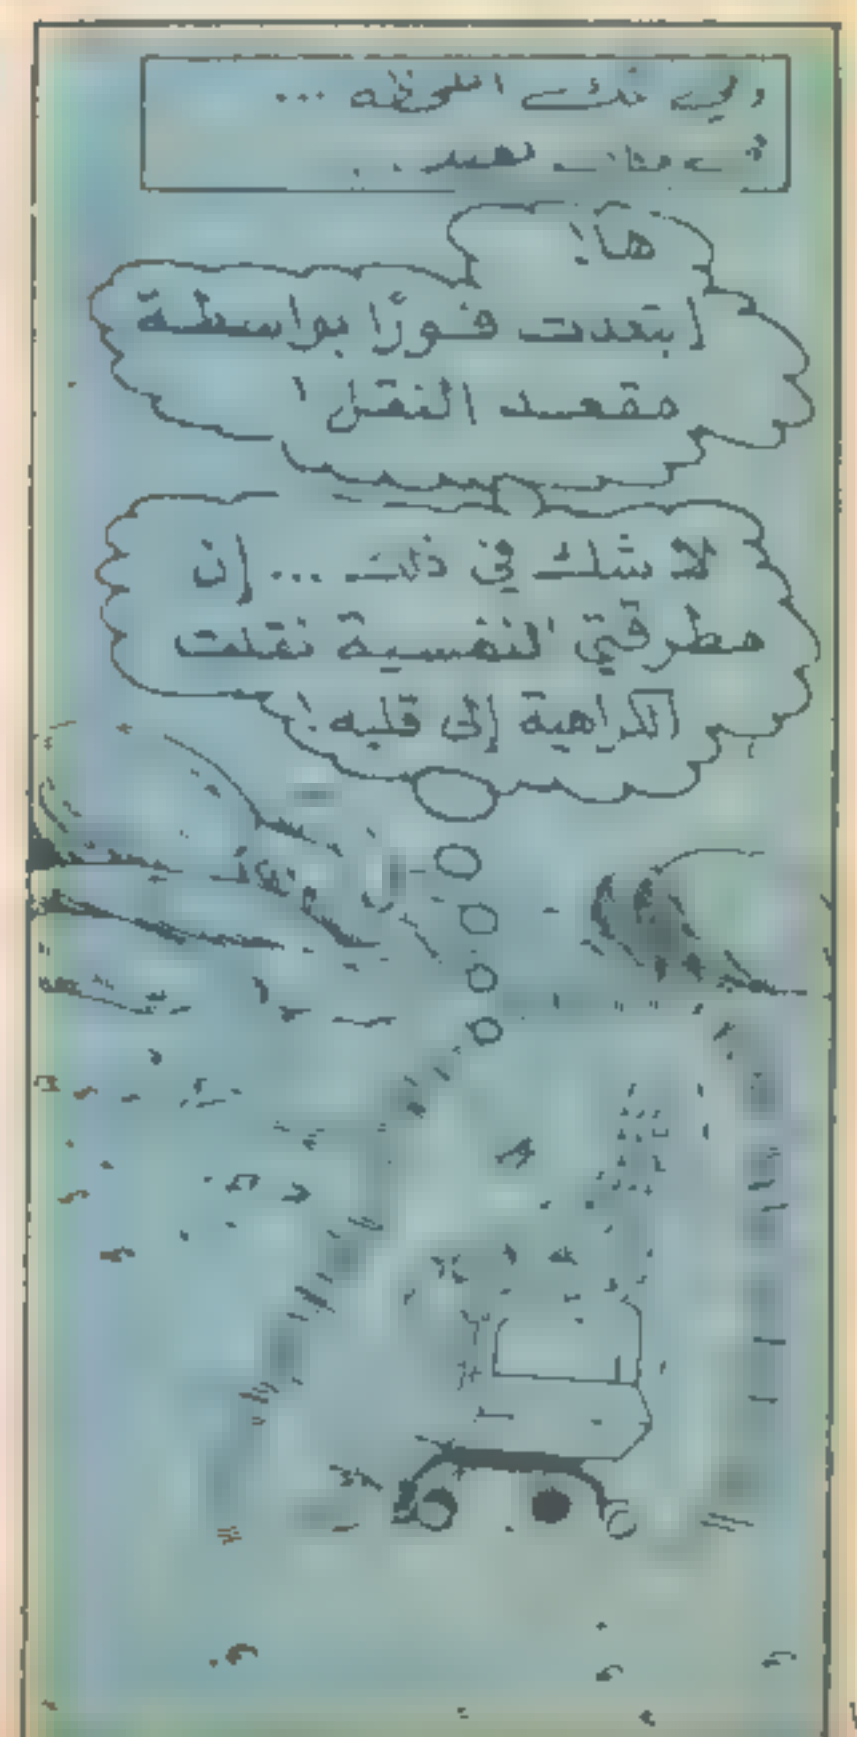 وفي تلك اللحظة ...
ها!
ابتعدت فورًا بواسطة
مقعد النقل!
لا شك في ذلك ... إن
مطرقتي النفسية نقلت
الكراهية إلى قلبه!